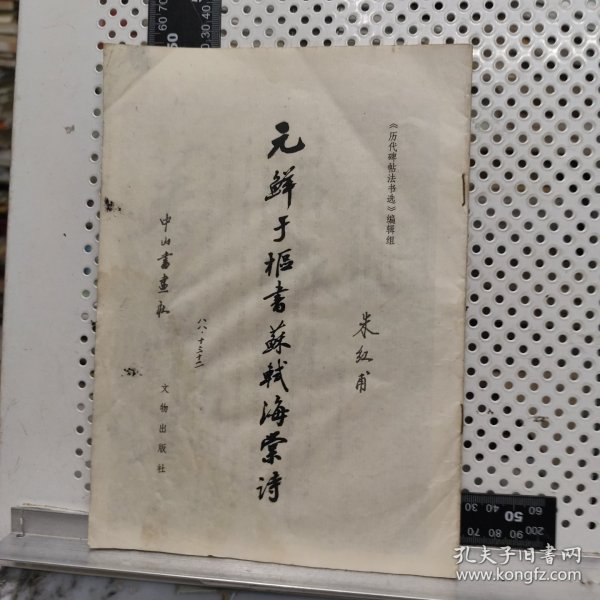 《历代碑帖法书选》编辑组
朱红甫
元鲜于枢書蘇軾海棠诗
中山書畫社
文物出版社
孔夫子旧书网
www.kongfz.com
60
70
50
20
30
40
50
60
200
90
80
70
60